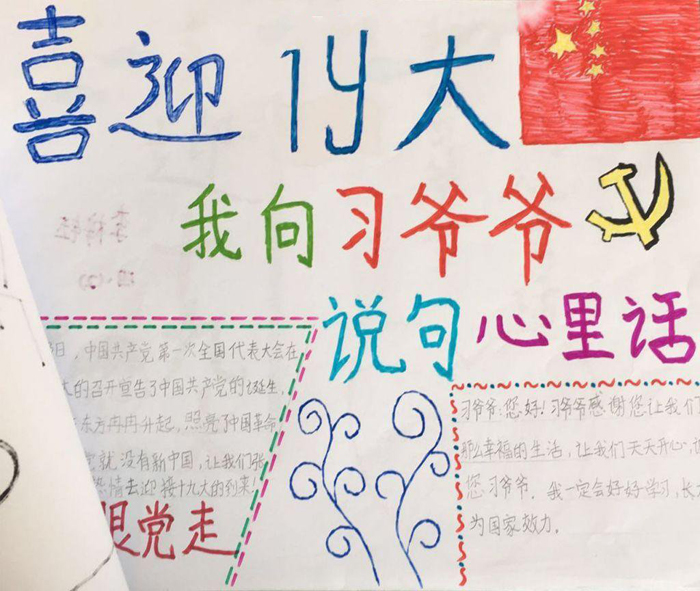 喜迎19大
我向习爷爷
说句心里话
日，中国共产党第一次全国代表大会在
的召开宣告了中国共产党的诞生，
东方冉冉升起，照亮了中国革命
就没有新中国，让我们张
热情去迎接十九大的到来！
跟党走
习爷爷：您好！习爷爷感谢您让我们
那么幸福的生活，让我们天天开心，
您习爷爷，我一定会好好学习，长
为国家效力。